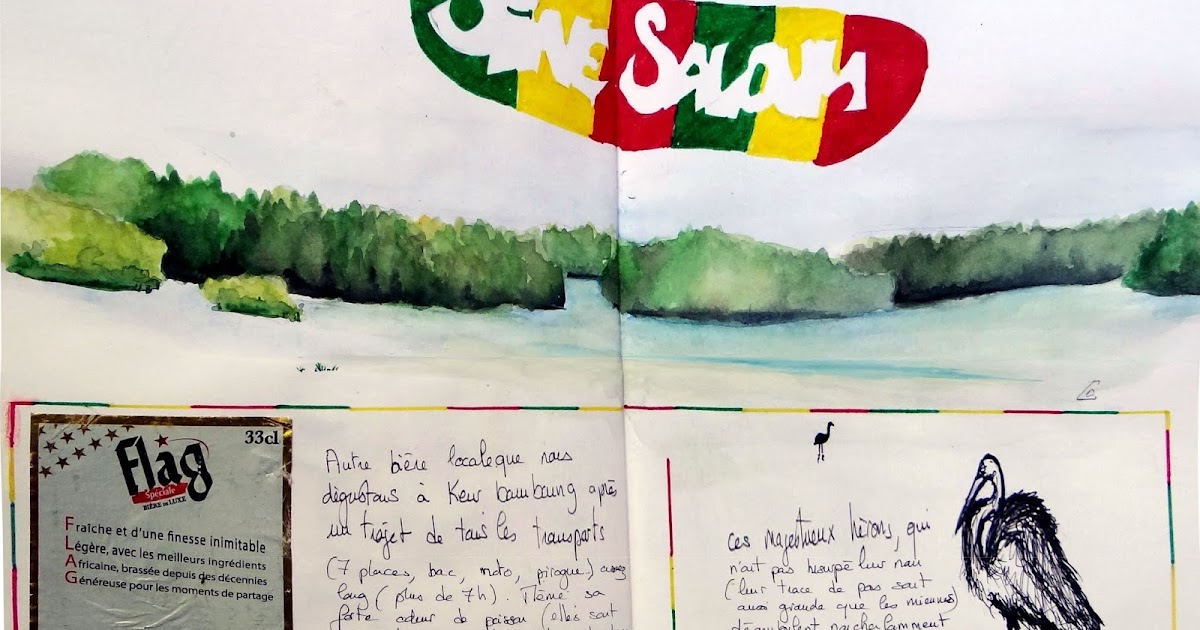 SINE SALOUM
33cl
Flag
Spéciale
BIÈRE DE LUXE
Fraîche et d'une finesse inimitable
Légère, avec les meilleurs ingrédients
Africaine, brassée depuis des décennies
Généreuse pour les moments de partage
Autre bière locale que nous
dégustons à Keur bambung après
un trajet de tous les transports
(7 places, bac, moto, pirogue) assez
long (plus de 7h). Même sa
forte odeur de poisson (elles sont
ces majestueux hérons, qui
n'ait pas huppé leur nau
(leur trace de pas sont
aussi grande que les miennes)
déambulent nonchalamment